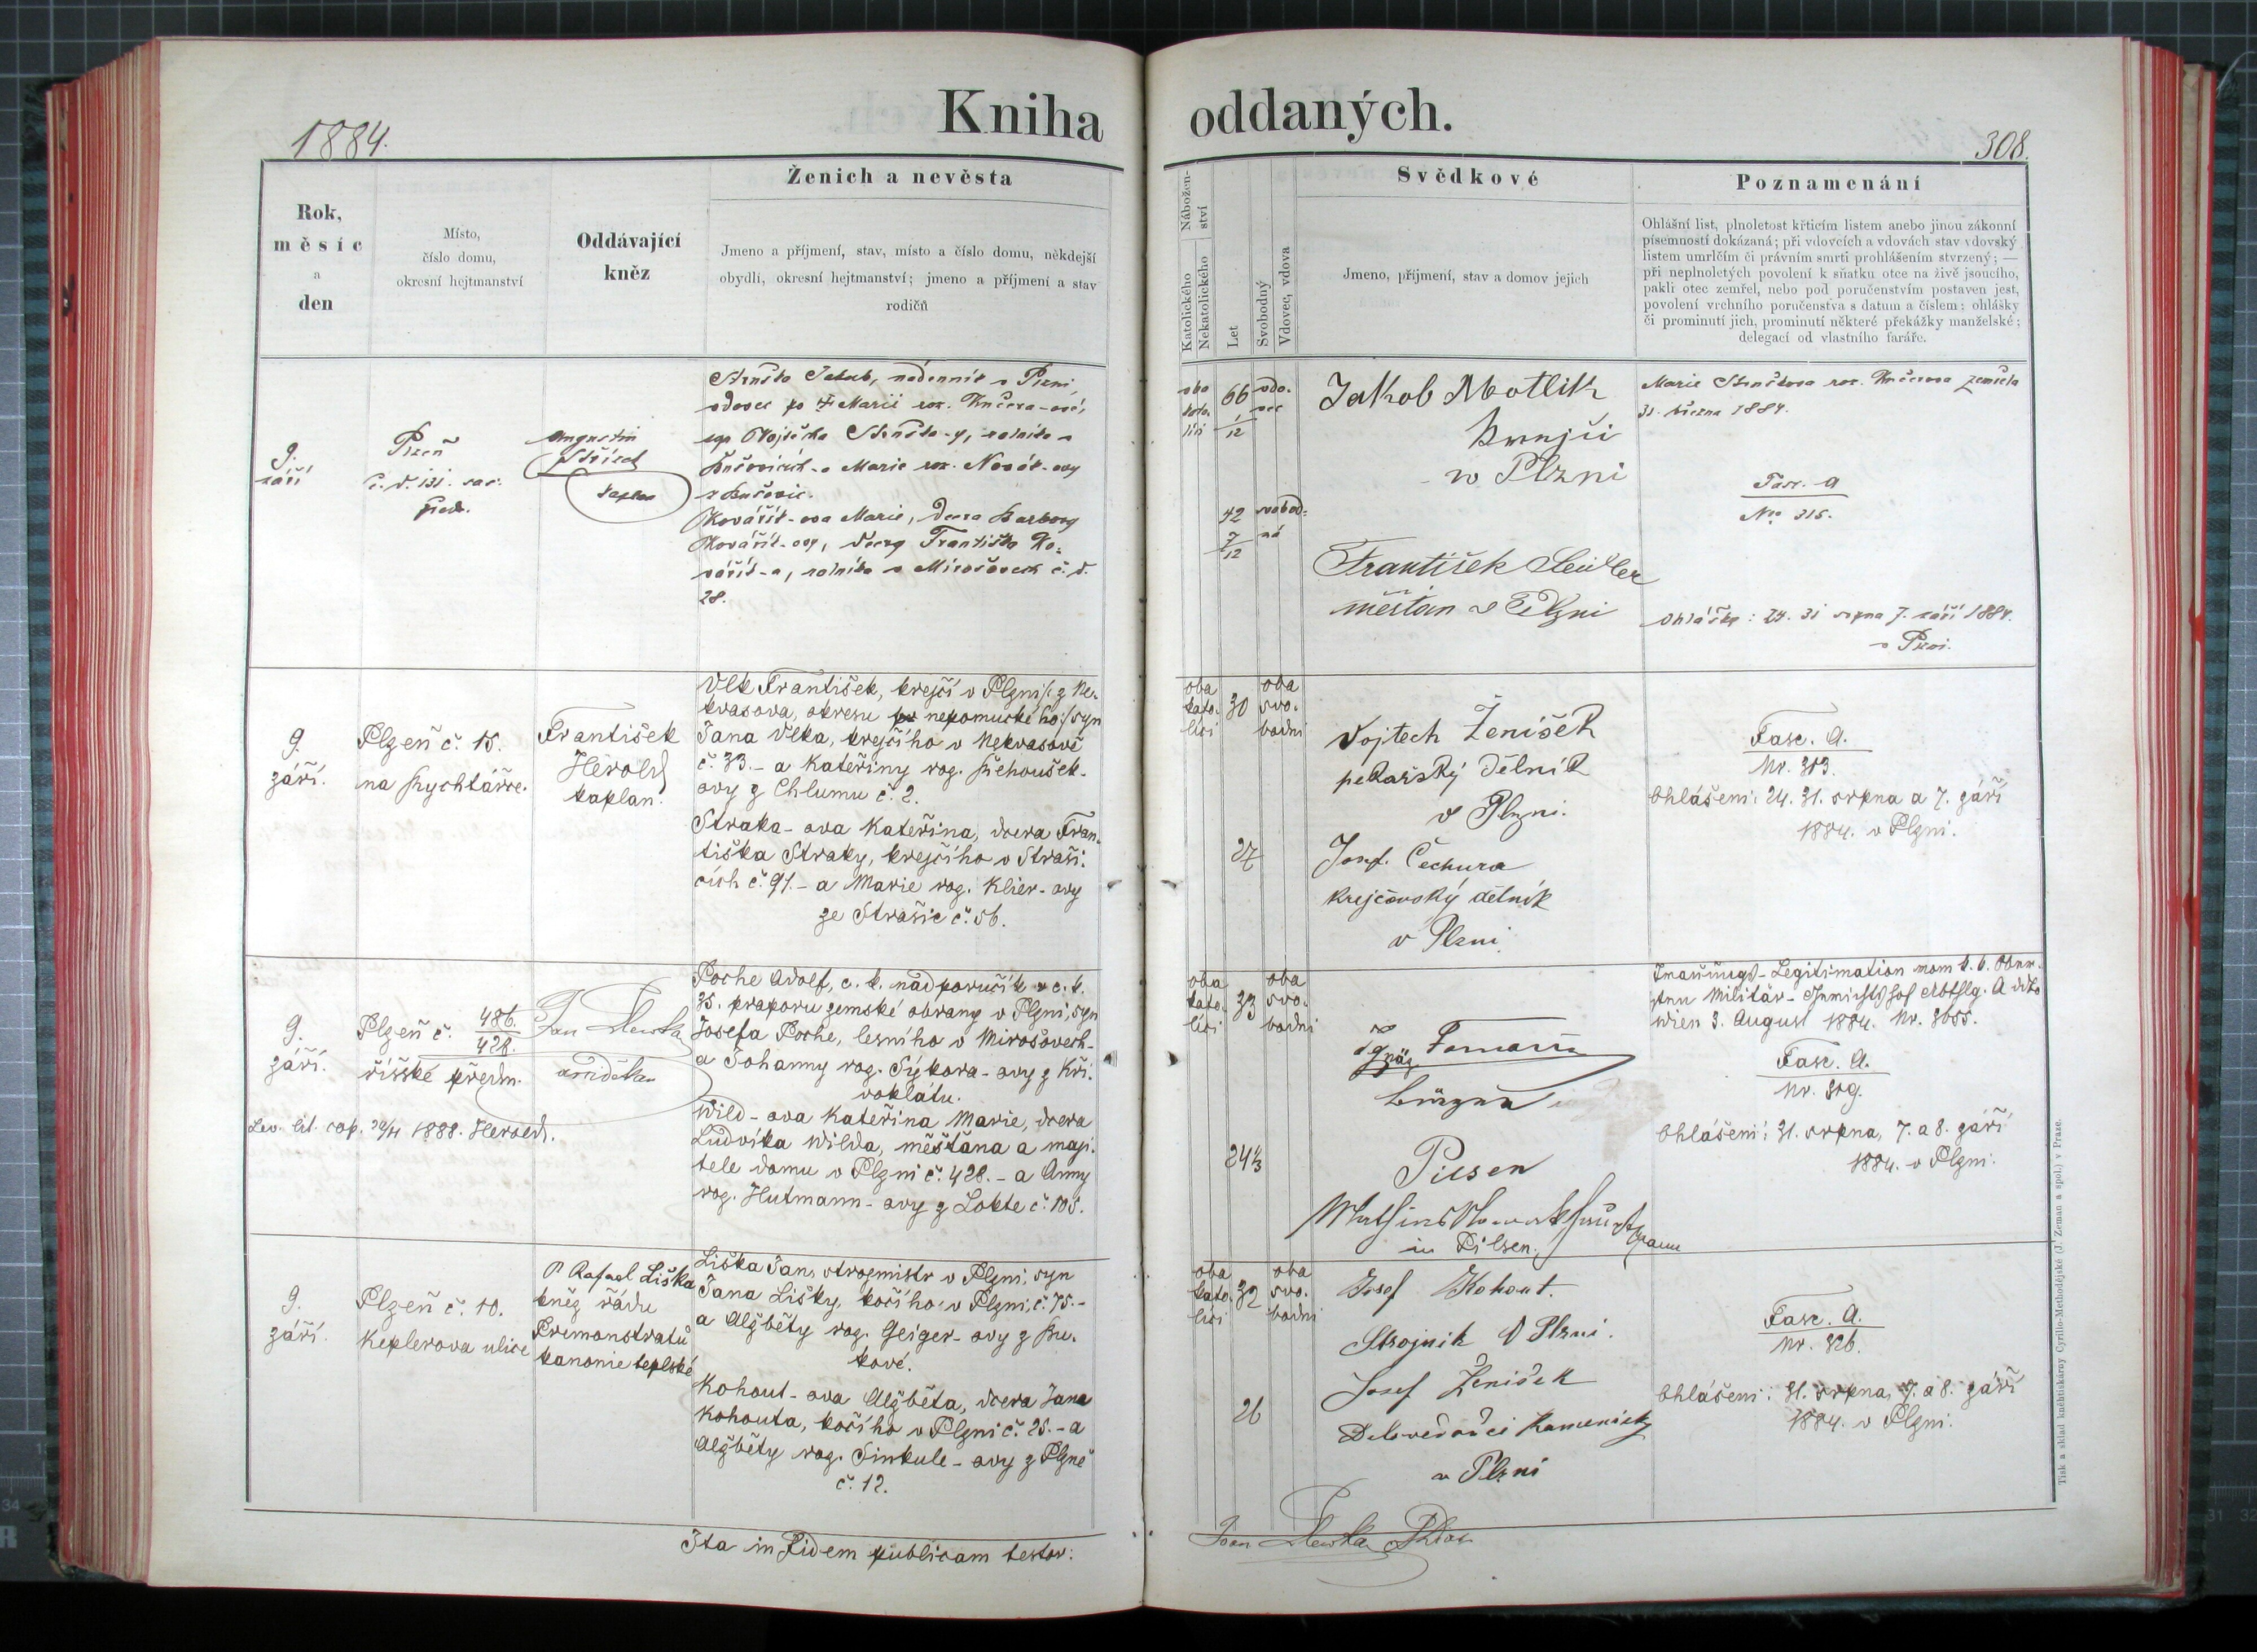 Kniha oddaných.
1884.
308.
Rok,
měsíc
a
den
Místo,
číslo domu,
okresní hejtmanství
Oddávající
kněz
Ženich a nevěsta
Jmeno a příjmení, stav, místo a číslo domu, někdejší
obydlí, okresní hejtmanství; jmeno a příjmení a stav
rodičů
Nábožen-
ství
Katolického
Nekatolického
Let
Svobodný
Vdovec, vdova
Svědkové
Jmeno, příjmení, stav a domov jejich
Poznamenání
Ohlášní list, plnoletost křticím listem anebo jinou zákonní
písemností dokázaná; při vdovcích a vdovách stav vdovský
listem umrlčím či právním smrti prohlášením stvrzený; —
při neplnoletých povolení k sňatku otce na živě jsoucího,
pakli otec zemřel, nebo pod poručenstvím postaven jest,
povolení vrchního poručenstva s datum a číslem; ohlášky
či prominutí jich, prominutí některé překážky manželské;
delegací od vlastního faráře.
9.
září
Plzeň
č. d. 131.
předm.
Augustin
kaplan
Jakub, nádenník v Plzni
vdovec po † Marii roz. Kučera-ové,
syn Vojtěcha rolníka v
a Marie roz. Novák-ovy
Kovářík-ova Marie, dcera Barbory
Kovářík-ovy, dcery Františka Ko-
vářík-a, rolníka v Mirošovech č. d.
28.
oba
kato-
líci
66
1/12
vdo-
vec
42
7/12
svobod-
ná
Jakob Motlik
v Plzni
František
měšťan v Plzni
Marie roz. Kučerova zemřela
31. března 1884.
Fasc. A
Nro 315.
Ohlášky: 24. 31 srpna 7. září 1884.
v Plzni.
9.
září.
Plzeň č. 15.
na Rychtářce.
František
Herold
kaplan.
Vlk František, krejčí v Plzni /: z Ne-
kvasova, okresu nepomuckého :/ syn
Jana Vlka, krejčího v Nekvasově
č. 33. - a Kateřiny roz. Řehoušek-
ovy z Chlumu č. 2.
Straka-ova Kateřina, dcera Fran-
tiška Straky, krejčího v Straši-
cích č. 91. - a Marie roz. Klier-ovy
ze Strašic č. 56.
oba
kato-
líci
30
oba
svo-
bodni
27
Vojtech Ženíšek
pekařský dělník
v Plzni.
Josef Čechura
krejčovský dělník
v Plzni
Fasc. A.
Nr. 313.
Ohlášeni: 24. 31. srpna a 7. září
1884. v Plzni.
9.
září.
Plzeň č. 486.
428.
říšské předm.
Jan
arciděkan
Lev. lit. cop. 1888. Herold.
Poche Adolf, c. k. nadporučík v c. k.
35. praporu zemské obrany v Plzni, syn
Josefa Poche, lesního v Mirošovech-
a Johanny roz. Sýkora-ovy z Kři-
voklátu.
Wild-ova Kateřina Marie, dcera
Ludvíka Wilda, měšťana a maji-
tele domu v Plzni č. 428. - a Anny
roz. Hutmann-ovy z Lokte č. 105.
oba
kato-
líci
33
oba
svo-
bodni
24 1/3
Pilsen
in Pilsen.
Trauungs-Legitimation vom k. k.
Militär- Abthlg. A ddto
Wien 3. August 1884. Nr. 3655.
Fasc. A.
Nr. 319.
Ohlášeni: 31. srpna, 7. a 8. září
1884. v Plzni.
9.
září.
Plzeň č. 10.
Keplerova ulice
P Rafael Liška
kněz řádu
Premonstratů
kanonie teplské
Liška Jan, strojmistr v Plzni, syn
Jana Lišky, kočího v Plzni, č. 75. -
a Alžběty roz. Geiger-ovy z Bu-
kové.
Kohout-ova Alžběta, dcera Jana
Kohouta, kočího v Plzni č. 25. - a
Alžběty roz. Sinkule-ovy z Plzně
č. 12.
oba
kato-
líci
32
oba
svo-
bodni
26
Josef Kohout.
Strojnik v Plzni.
Josef Ženíšek
Kamenický
v Plzni
Fasc. A.
Nr. 326.
Ohlášeni: 31. srpna, 7. a 8. září
1884. v Plzni.
Ita in fidem publicam testor:
Tisk a sklad knihtiskárny Cyrillo-Methodějské (J. Zeman a spol.) v Praze.